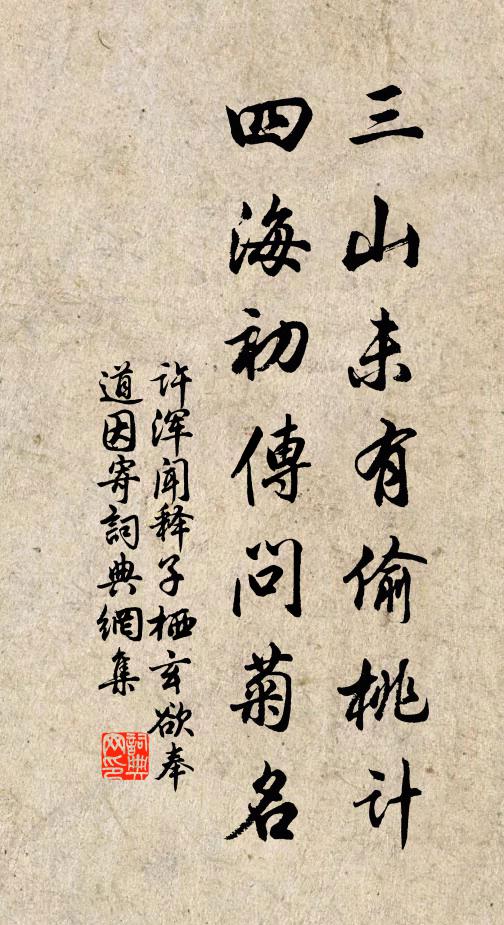 三山未有偷桃计
四海初傳问菊名
许浑闻释子栖玄欲奉
道因寄詞典網集
詞典网印